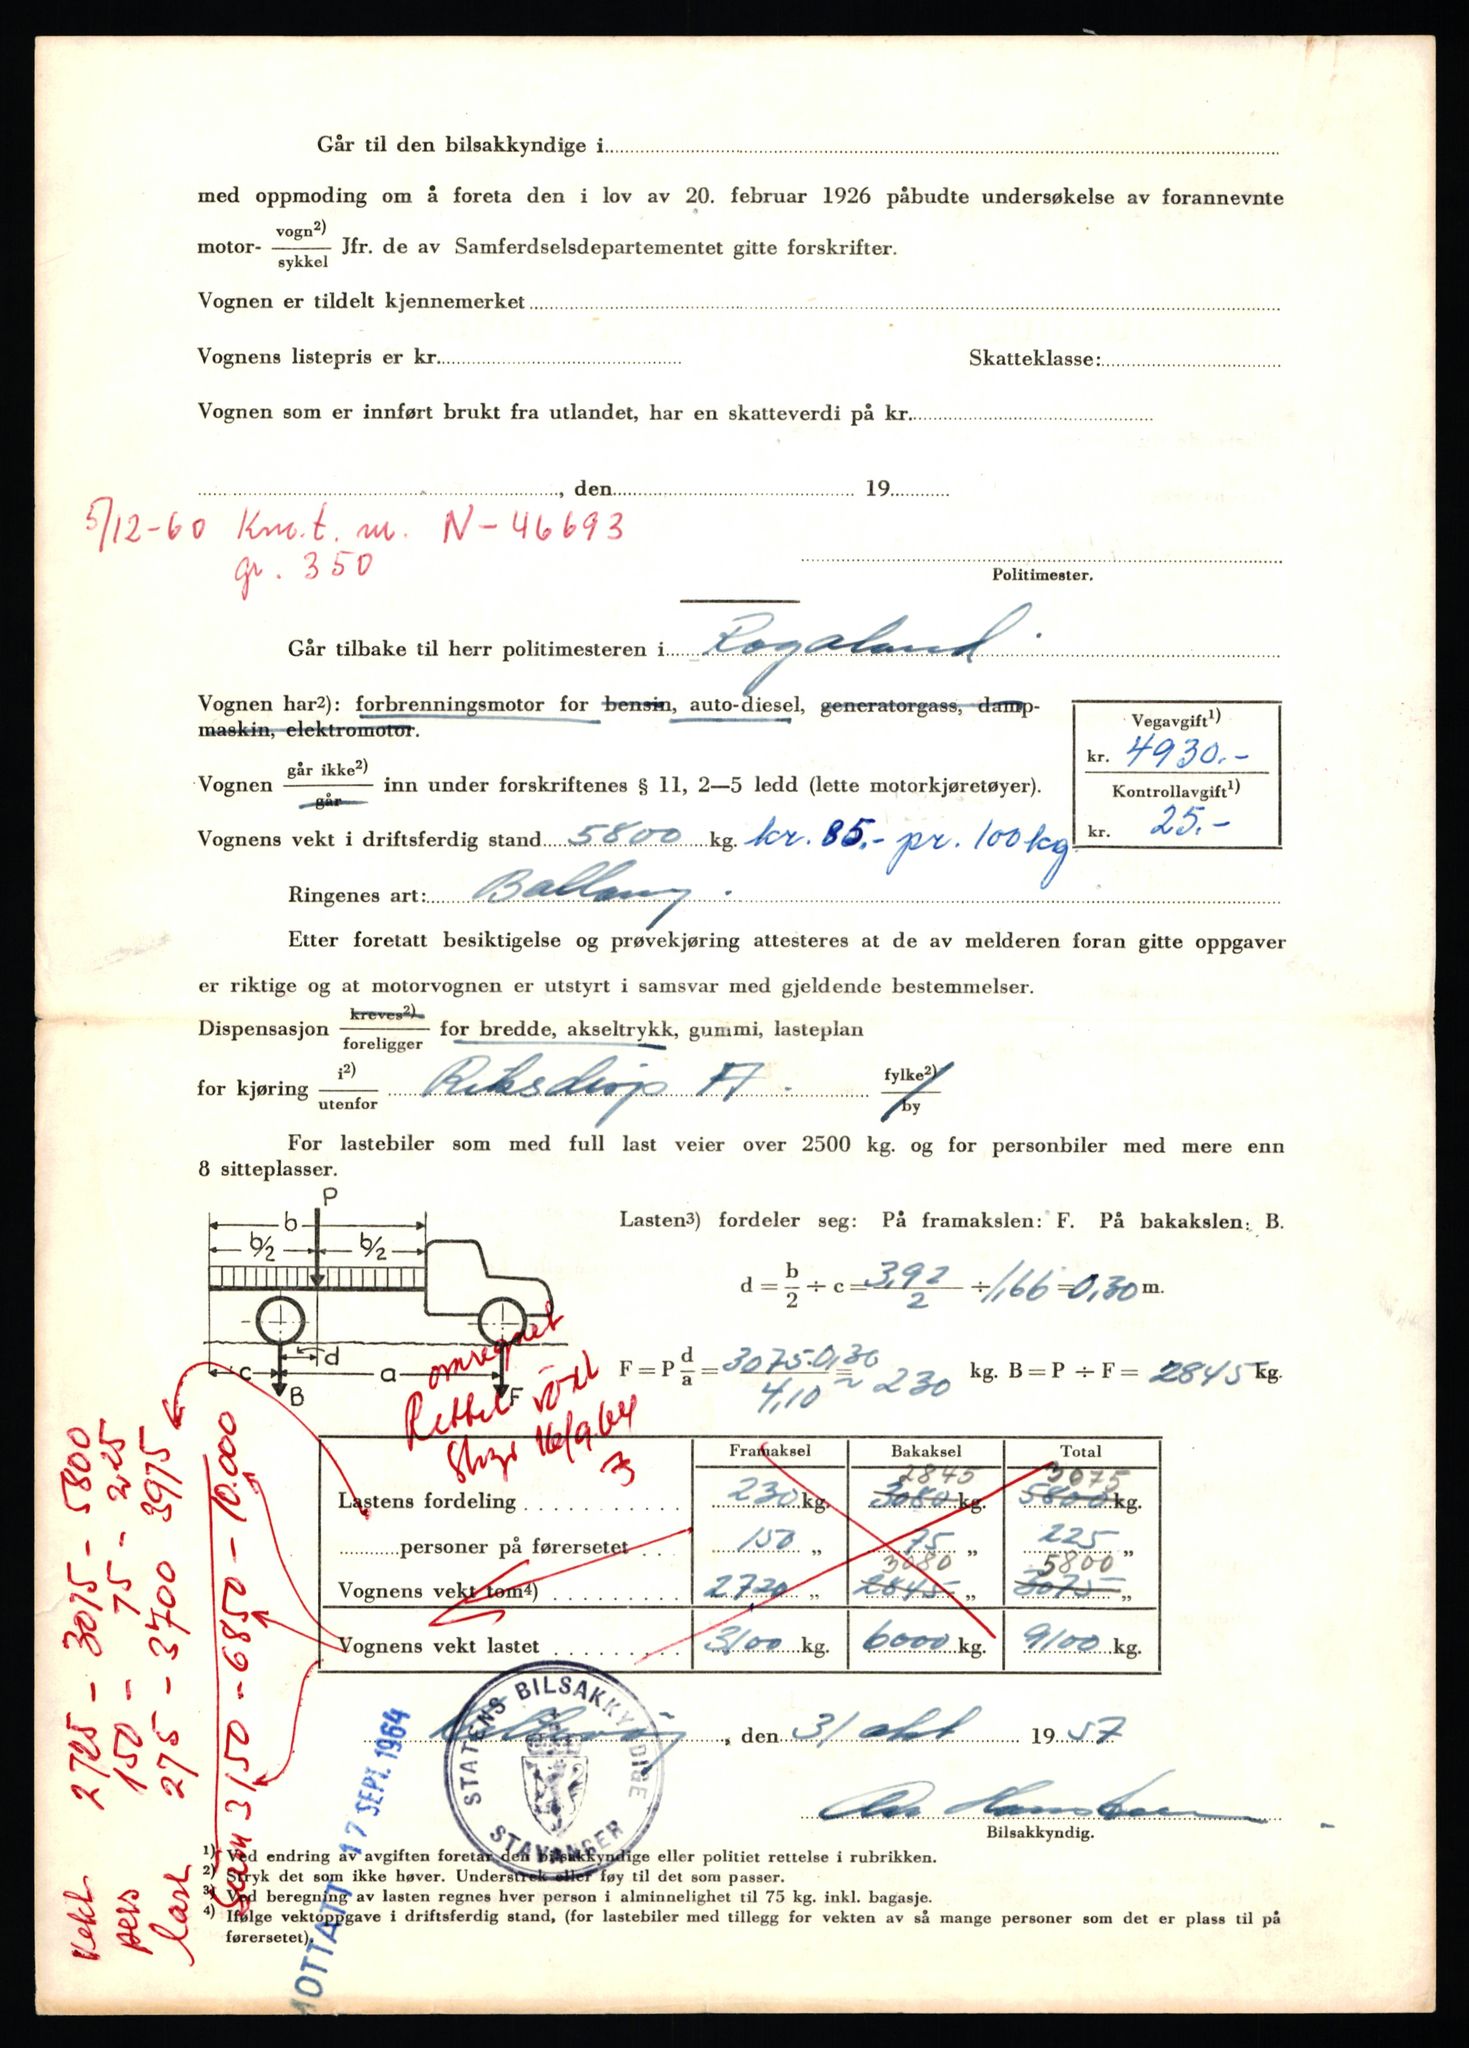 Går til den bilsakkyndige i
med oppmoding om å foreta den i lov av 20. februar 1926 påbudte undersøkelse av forannevnte
motor- vogn²) / sykkel Jfr. de av Samferdselsdepartementet gitte forskrifter.
Vognen er tildelt kjennemerket
Vognens listepris er kr. Skatteklasse:
Vognen som er innført brukt fra utlandet, har en skatteverdi på kr.
, den 19
5/12-60 Kno.t. m. N-46693
gr. 350
Politimester.
Går tilbake til herr politimesteren i Rogaland.
Vognen har²): forbrenningsmotor for bensin, auto-diesel, generatorgass, damp-
maskin, elektromotor.
Vegavgift¹)
kr. 4930.-
Vognen går ikke²) / går inn under forskriftenes § 11, 2—5 ledd (lette motorkjøretøyer).
Kontrollavgift¹)
kr. 25.-
Vognens vekt i driftsferdig stand 5800 kg. kr. 85.- pr. 100 kg
Ringenes art: Ballong.
Etter foretatt besiktigelse og prøvekjøring attesteres at de av melderen foran gitte oppgaver
er riktige og at motorvognen er utstyrt i samsvar med gjeldende bestemmelser.
Dispensasjon kreves²) / foreligger for bredde, akseltrykk, gummi, lasteplan
for kjøring i²) / utenfor fylke²) / by
For lastebiler som med full last veier over 2500 kg. og for personbiler med mere enn
8 sitteplasser.
P
b
b/2 b/2
d
c a
B F
Lasten³) fordeler seg: På framakslen: F. På bakakslen: B.
d = b/2 ÷ c = 3,92/2 ÷ 1,66 = 0,30 m.
F = P d/a = 3075·0,30 / 4,10 = ~ 230 kg. B = P ÷ F = 2845 kg.
omregnet
Rettet rött
16/9 64
Framaksel Bakaksel Total
2845 3075
Lastens fordeling 230 kg. 3080 kg. 5800 kg.
personer på førersetet 150 „ 75 „ 225 „
3080 5800
Vognens vekt tom⁴) 2720 „ 2845 „ 3075 „
Vognens vekt lastet 3100 kg. 6000 kg. 9100 kg.
Vekt 2725 - 3075 - 5800
pers 150 - 75 - 225
last 275 - 3700 3975
Sum 3150 - 6850 - 10.000
, den 31 okt 1957
STATENS BILSAKKYNDIGE
STAVANGER
MOTTATT 17 SEPT. 1964
Bilsakkyndig.
¹) Ved endring av avgiften foretar den bilsakkyndige eller politiet rettelse i rubrikken.
²) Stryk det som ikke høver. Understrek eller føy til det som passer.
³) Ved beregning av lasten regnes hver person i alminnelighet til 75 kg. inkl. bagasje.
⁴) Ifølge vektoppgave i driftsferdig stand, (for lastebiler med tillegg for vekten av så mange personer som det er plass til på
førersetet).